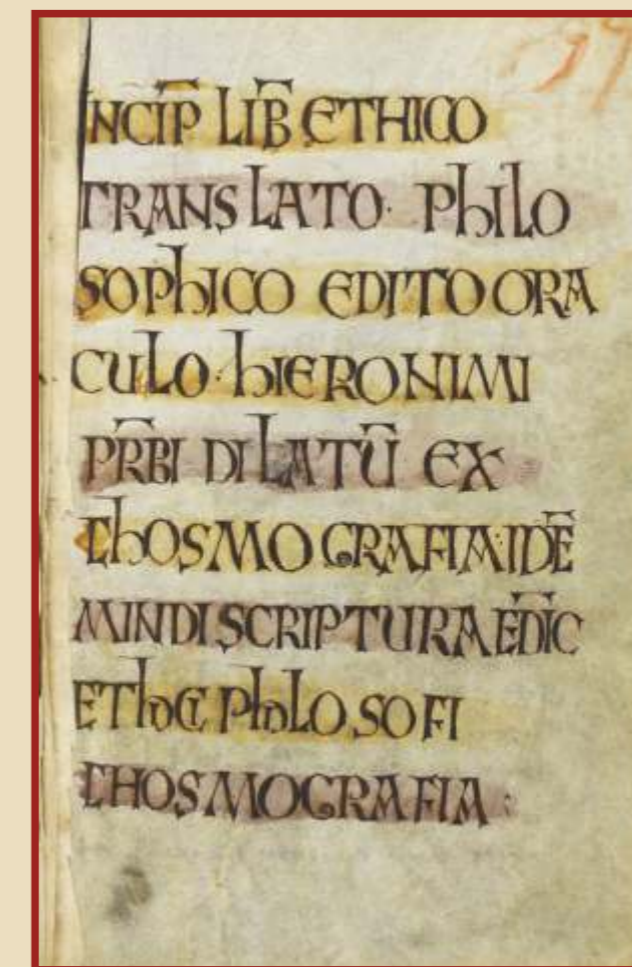 INCIP̅ LIB̅ ETHICO
TRANSLATO· PhILO
SOPhICO EDITO ORA
CULO· hIERONIMI
PR̅BI DILATU̅ EX
ChOSMOGRAFIA·IDE̅
MINDI SCRIPTURA EDIC̅
EThICI PhILOSOFI
CHOSMOGRAFIA: